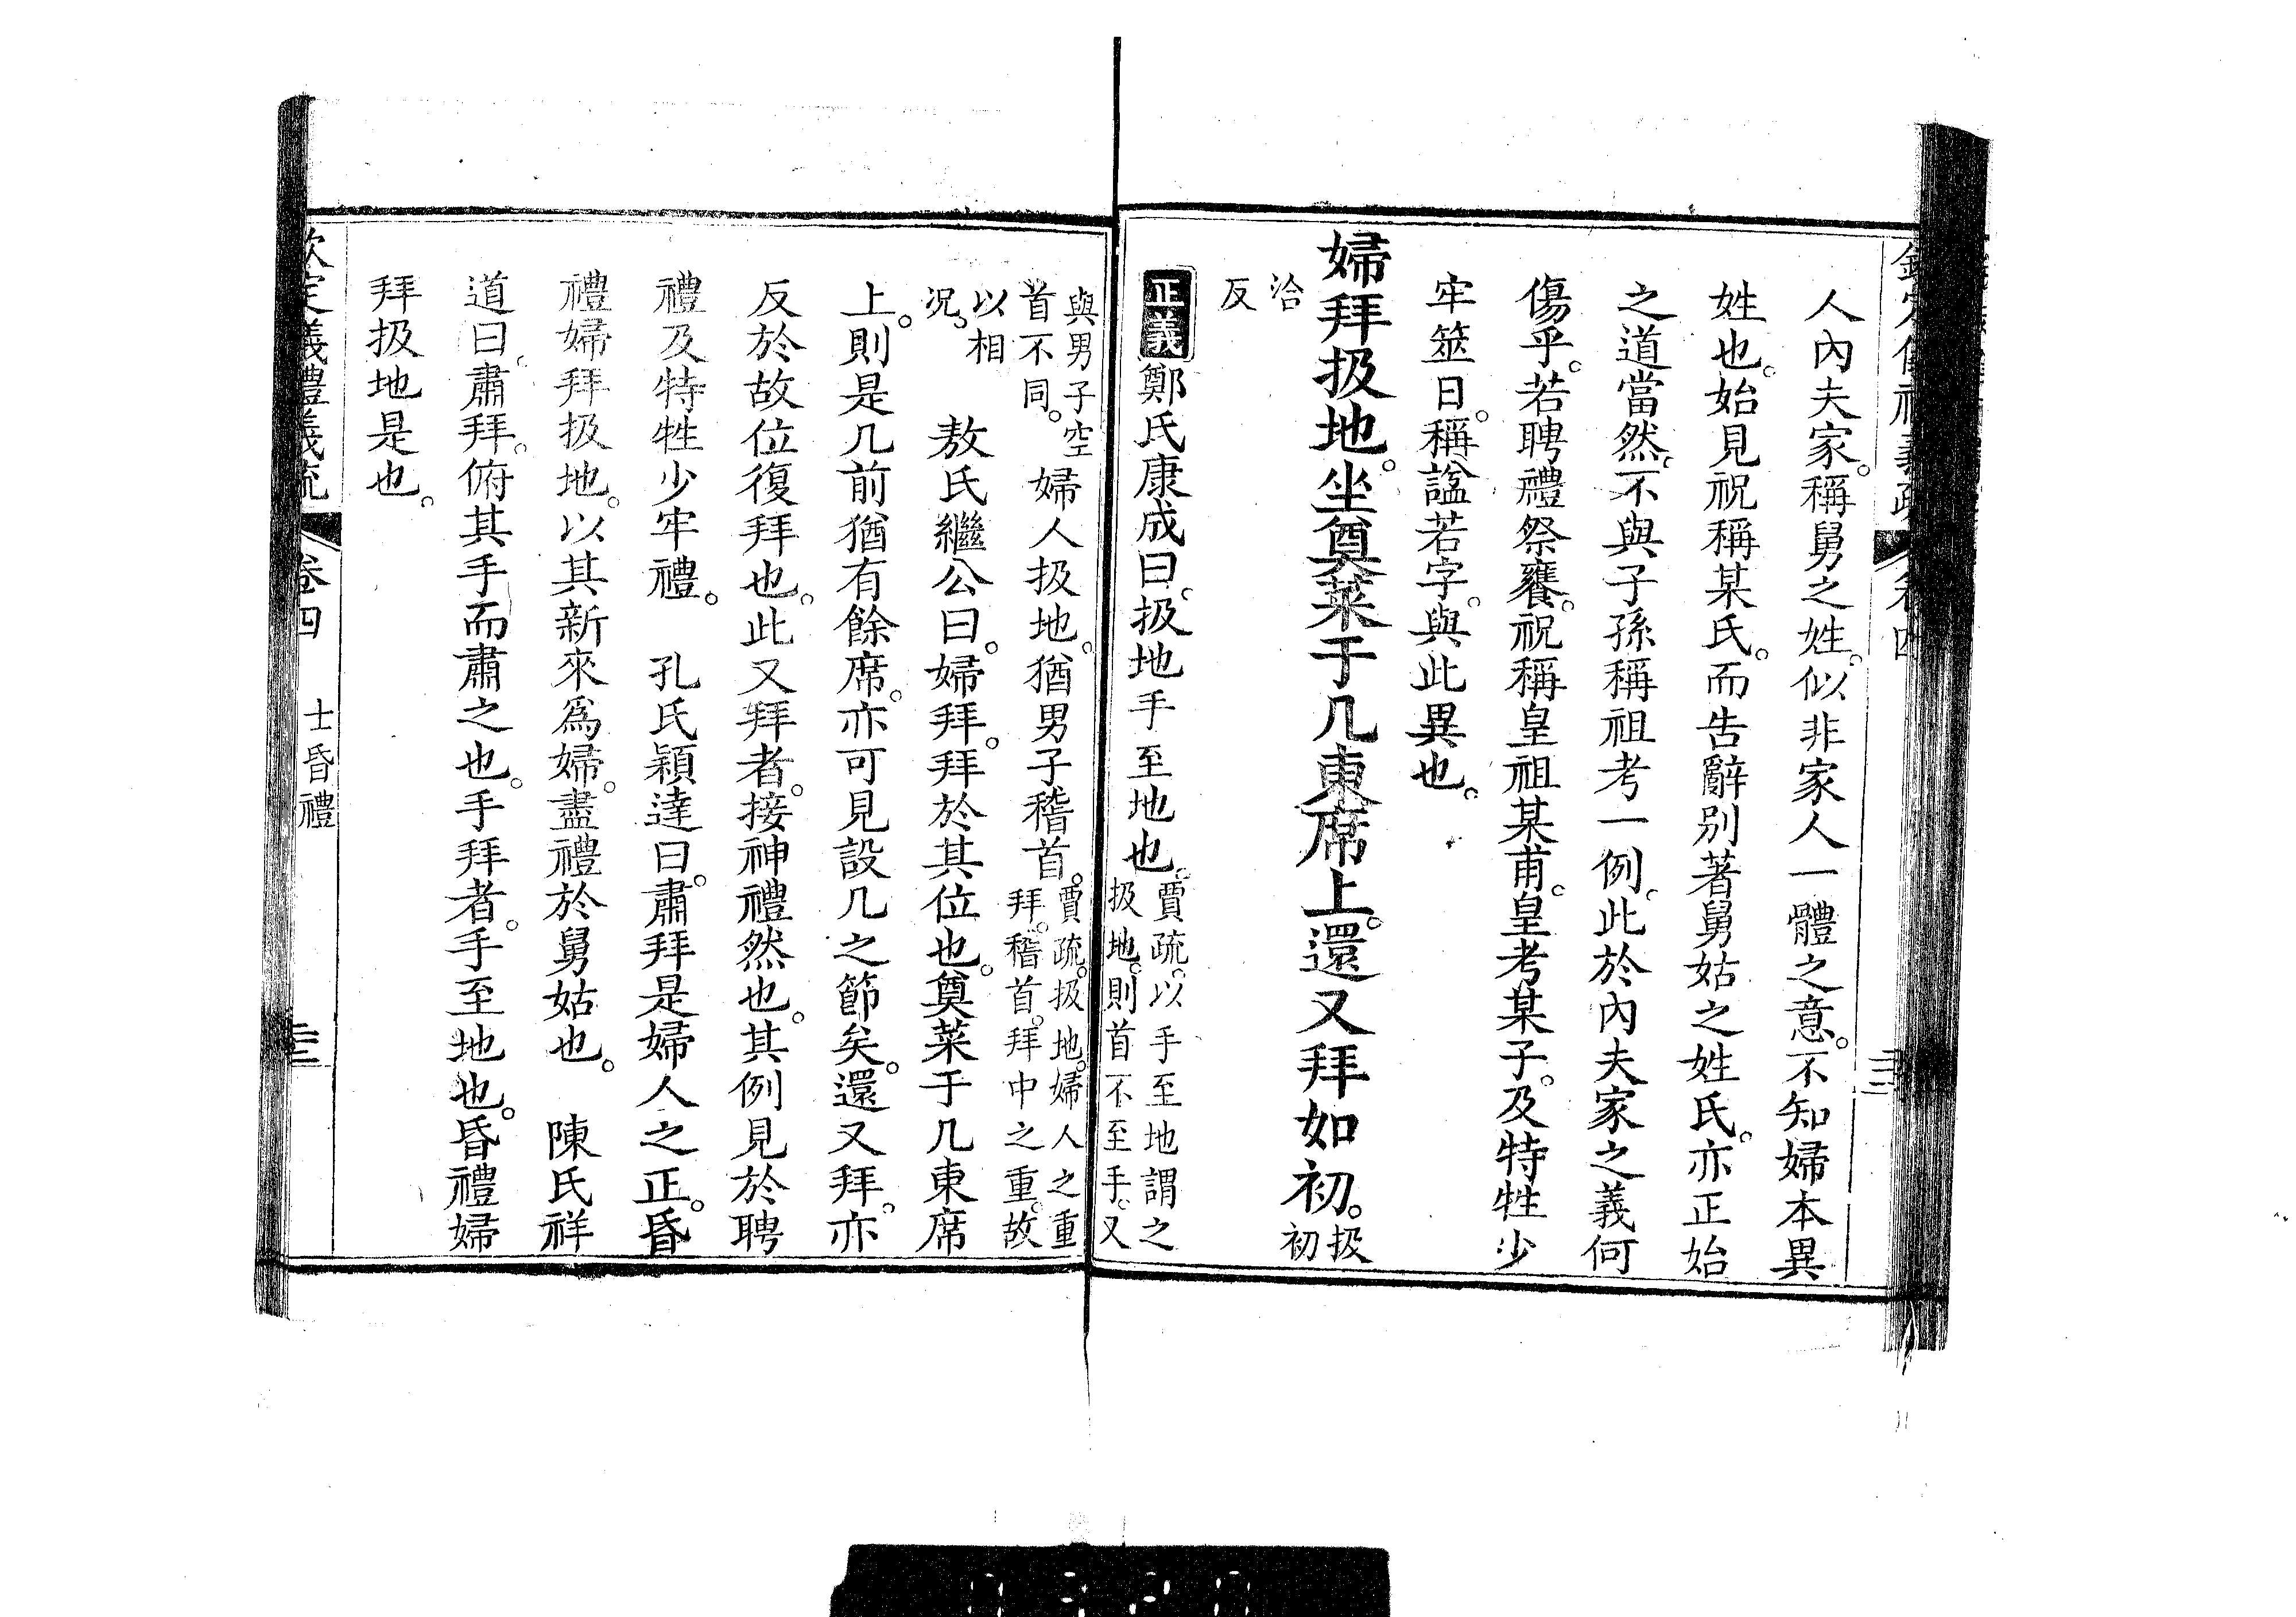 人內夫家。稱舅之姓。似非家人一體之意。不知婦本異
姓也。始見祝稱某氏。而告辭別著舅姑之姓氏。亦正始
之道當然。不與子孫稱祖考一例。此於內夫家之義何
傷乎。若聘禮祭饔。祝稱皇祖某甫。皇考某子。及特牲少
牢筮日。稱諡若字。與此異也。
婦拜扱地。坐奠菜于几東席上。還又拜如初。扱
初
洽
反
正義鄭氏康成曰。扱地手至地也。賈疏。以手至地謂之
扱地。則首不至手。又
與男子空
首不同。婦人扱地。猶男子稽首。賈疏。扱地。婦人之重
拜。稽首。拜中之重。故
以相
況。敖氏繼公曰。婦拜。拜於其位也。奠菜于几東席
上。則是几前猶有餘席。亦可見設几之節矣。還又拜。亦
反於故位復拜也。此又拜者。接神禮然也。其例見於聘
禮及特牲少牢禮。 孔氏穎達曰。肅拜是婦人之正。昏
禮婦拜扱地。以其新來爲婦。盡禮於舅姑也。 陳氏祥
道曰。肅拜。俯其手而肅之也。手拜者。手至地也。昏禮婦
拜扱地是也。
欽定儀禮義疏 卷四 士昏禮